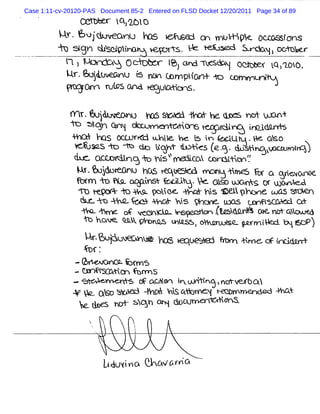 Case 1:11-cv-20120-PAS Document 85-2 Entered on FLSD Docket 12/20/2011 Page 34 of 89
October 19, 2010
Mr. Bujduveanu has refused on multiple occassions
to sign disciplinary reports. He refused Sunday, October
17, Monday October 18, and Tuesday October 19, 2010.
Mr. Bujduveanu is non compliant to community
program rules and regulations.
Mr. Bujduveanu has stated that he does not want
to sign any documentations regarding incidents
that has occurred while he is in facility. He also
refuses to to do light duties (e.g. dusting, vacuuming)
due according to his "medical condition."
Mr. Bujduveanu has requested many times for a grievance
form to file against facility. He also wants or wanted
to report to the police that his cell phone was stolen
due to the fact that his phone was confiscated at
the time of vechicle inspection (Residents are not allowed
to have cell phones unless, otherwise permitted by BOP)
Mr. Bujduveanu has requested from time of incident
for:
- Grievance forms
- Confiscation forms
- Statements of action in writing, not verbal
* He also stated that his attorney recommended that
he does not sign any documentations.
Liduvina Chavarria